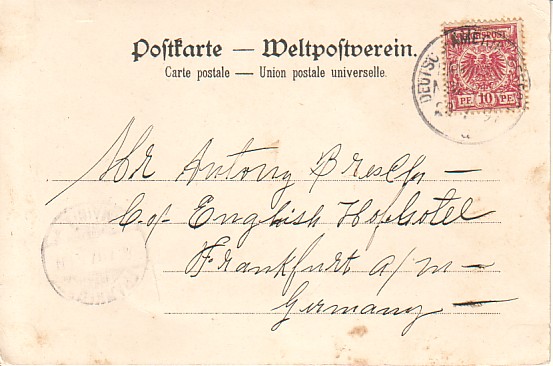 Postkarte — Weltpostverein.
Carte postale — Union postale universelle.
PF 10 PF
DEUTSCH
Mr Antony
C/o English Hof Hotel
Frankfurt a/m —
Germany —